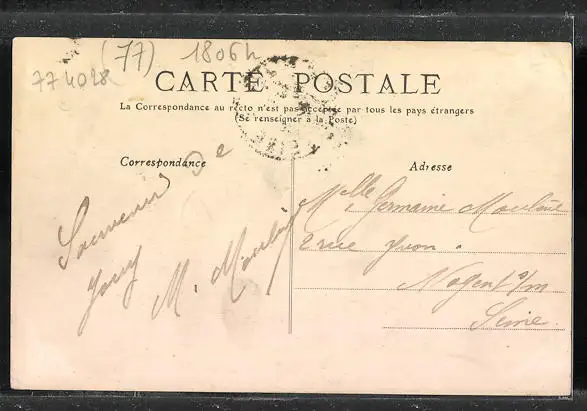 (77) 1806h
774028
CARTE POSTALE
La Correspondance au recto n'est pas acceptée par tous les pays étrangers
(Se renseigner à la Poste)
Correspondance
Adresse
Souvenir de
Jouy
M. Moulin
Melle Germaine Mouline
2 rue Yvon
Nogent s/m
Seine.